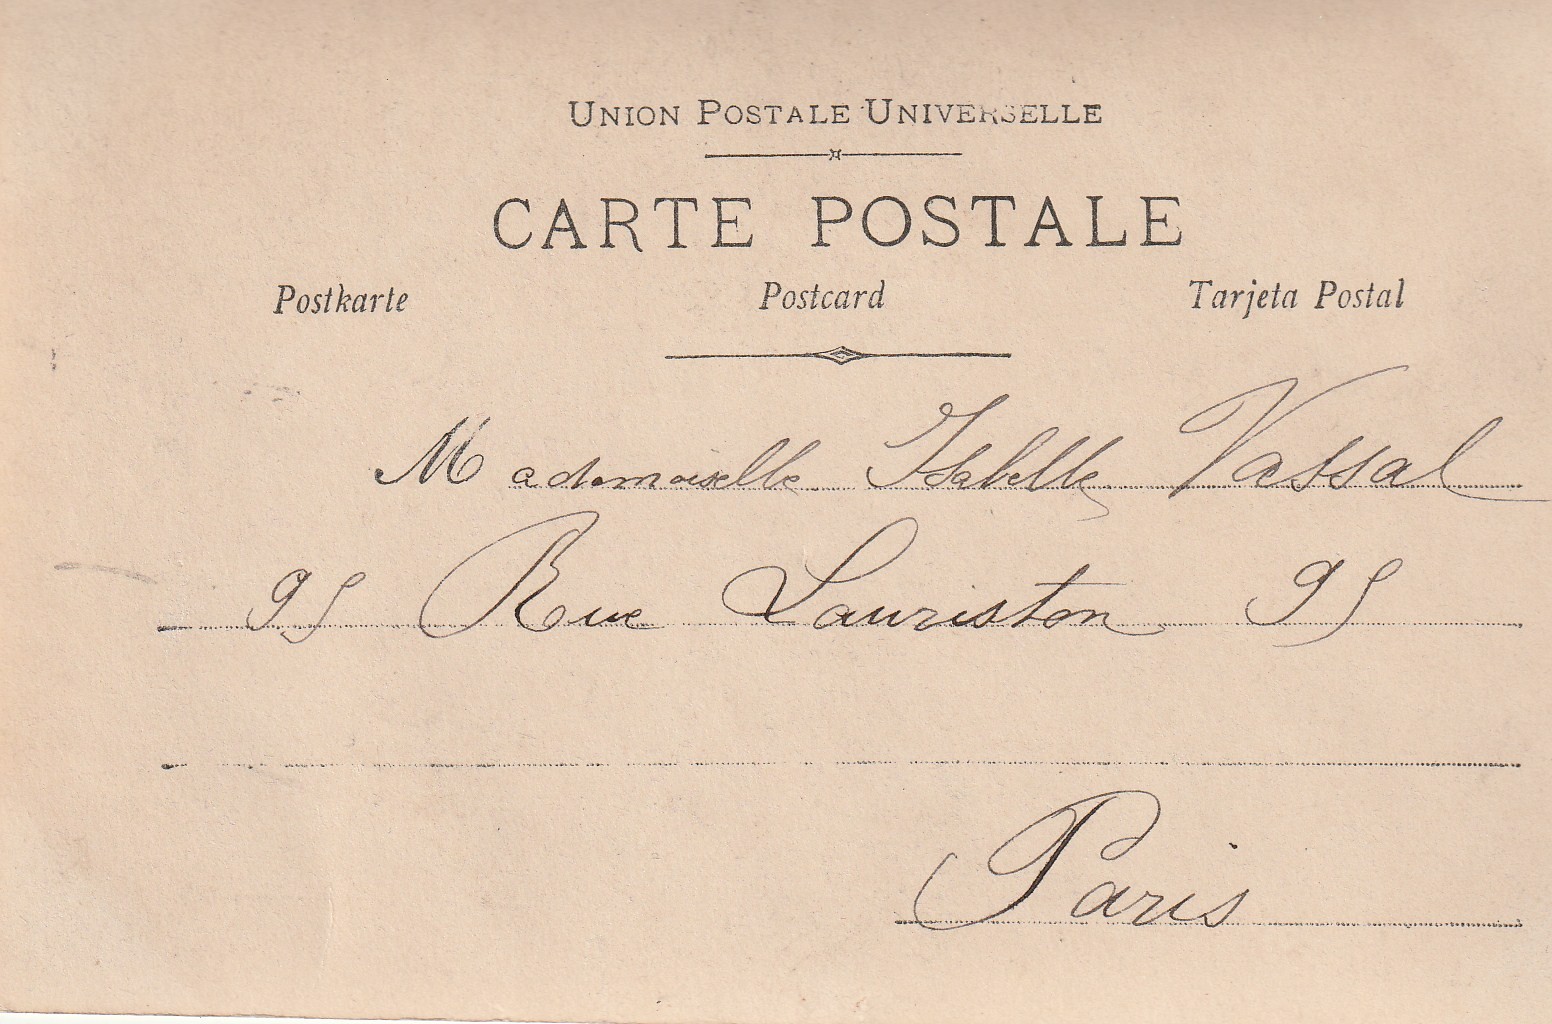 UNION POSTALE UNIVERSELLE
CARTE POSTALE
Postkarte Postcard Tarjeta Postal
Mademoiselle Isabelle Vassal
95 Rue Lauriston 95
Paris